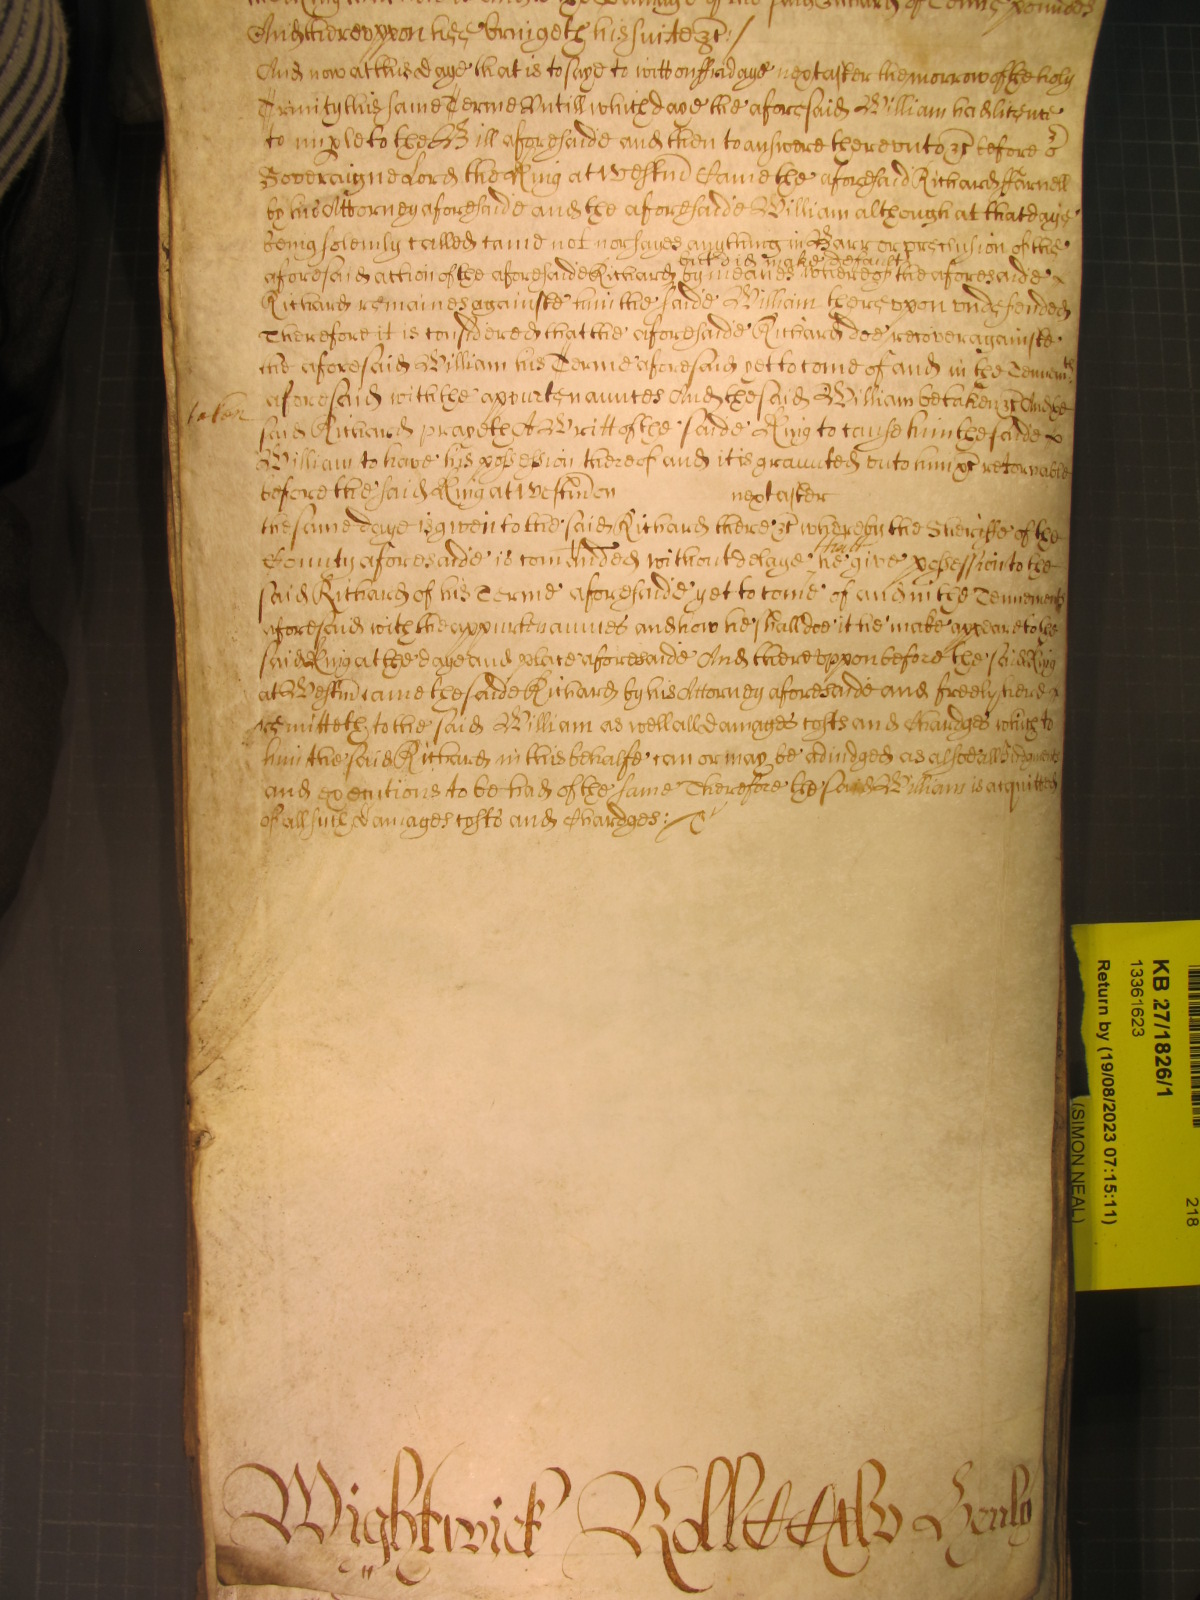 And thereuppon hee bringeth his suite &c /
And now at this daye that is to saye to witt on ffridaye next after the morrow of the holy
Trinity this same Terme Untill which daye the aforesaid William had licence
to imple to the Bill aforesaide and then to answere thereunto &c before o r
Soveraigne Lord the King at Westm Came the aforesaid Richard ffarnell
by his Attorney aforesaide and the aforesaide William although at that daye
being solemly called came not nor sayes anything in Barr or preclusion of the
but did make default
aforesaid action of the aforesaide Richard by meanes whereof the aforesaide
Richard remaines againste him the saide William thereuppon undefended
Therefore it is considered that the aforesaide Richard doe recover againste
the aforesaid William his Terme aforesaid yet to come of and in the Tenemts
taken
aforesaid with the appurtenaunces And the said William be taken &c And the
said Richard prayeth A Writt of the saide King to cause him the saide
William to have his possession thereof and it is graunted unto him &c retornable
before the said King at Westm on next after
the same daye is given to the said Richard there &c whereby the Sheriffe of the
that
County aforesaide is comanded without delaye he give possession to the
said Richard of his Terme aforesaide yet to come of and in the Tennements
aforesaid with the appurtenaunces and how he shall doe it he make appeare to the
said King at the daye and place aforesaide And thereuppon before the said King
at Westm came the saide Richard by his Attorney aforesaide and freely here
remitteth to the said William as well all damages costs and Chardges which to
him the said Richard in this behalfe can or may be adiudged as alsoe all
and executions to be had of the same Therefore the said William is acquitted
of all such damages costs and Chardges:/
Wightwick Roll Henly
KB 27/1826/1
13361623
Return by (19/08/2023 07:15:11)
(SIMON NEAL)
218